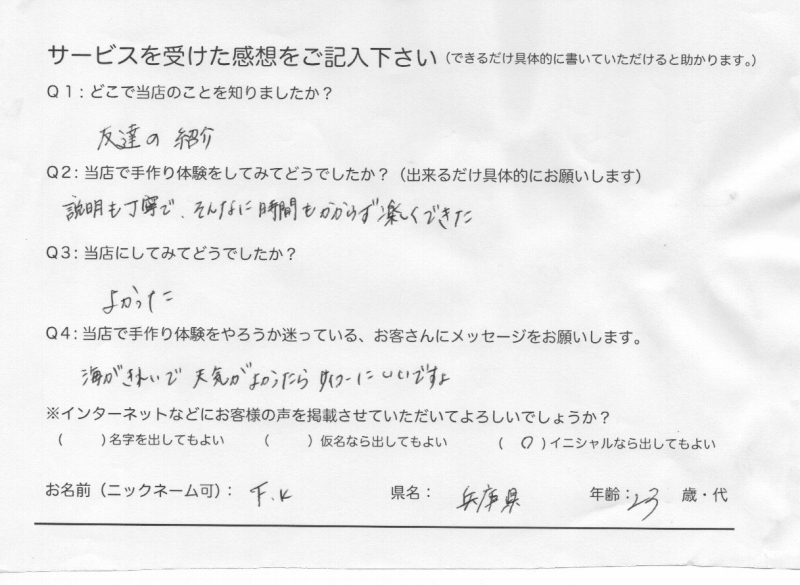 サービスを受けた感想をご記入下さい（できるだけ具体的に書いていただけると助かります。）
Q1：どこで当店のことを知りましたか？
友達の紹介
Q2：当店で手作り体験をしてみてどうでしたか？（出来るだけ具体的にお願いします）
説明も丁寧で、そんなに時間もかからず楽しくできた
Q3：当店にしてみてどうでしたか？
よかった
Q4：当店で手作り体験をやろうか迷っている、お客さんにメッセージをお願いします。
海がきれいで 天気がよかったら サイコーにいいですよ
※インターネットなどにお客様の声を掲載させていただいてよろしいでしょうか？
（　　）名字を出してもよい　（　　）仮名なら出してもよい　（ ○ ）イニシャルなら出してもよい
お名前（ニックネーム可）： F.K 県名： 兵庫県 年齢：23 歳・代